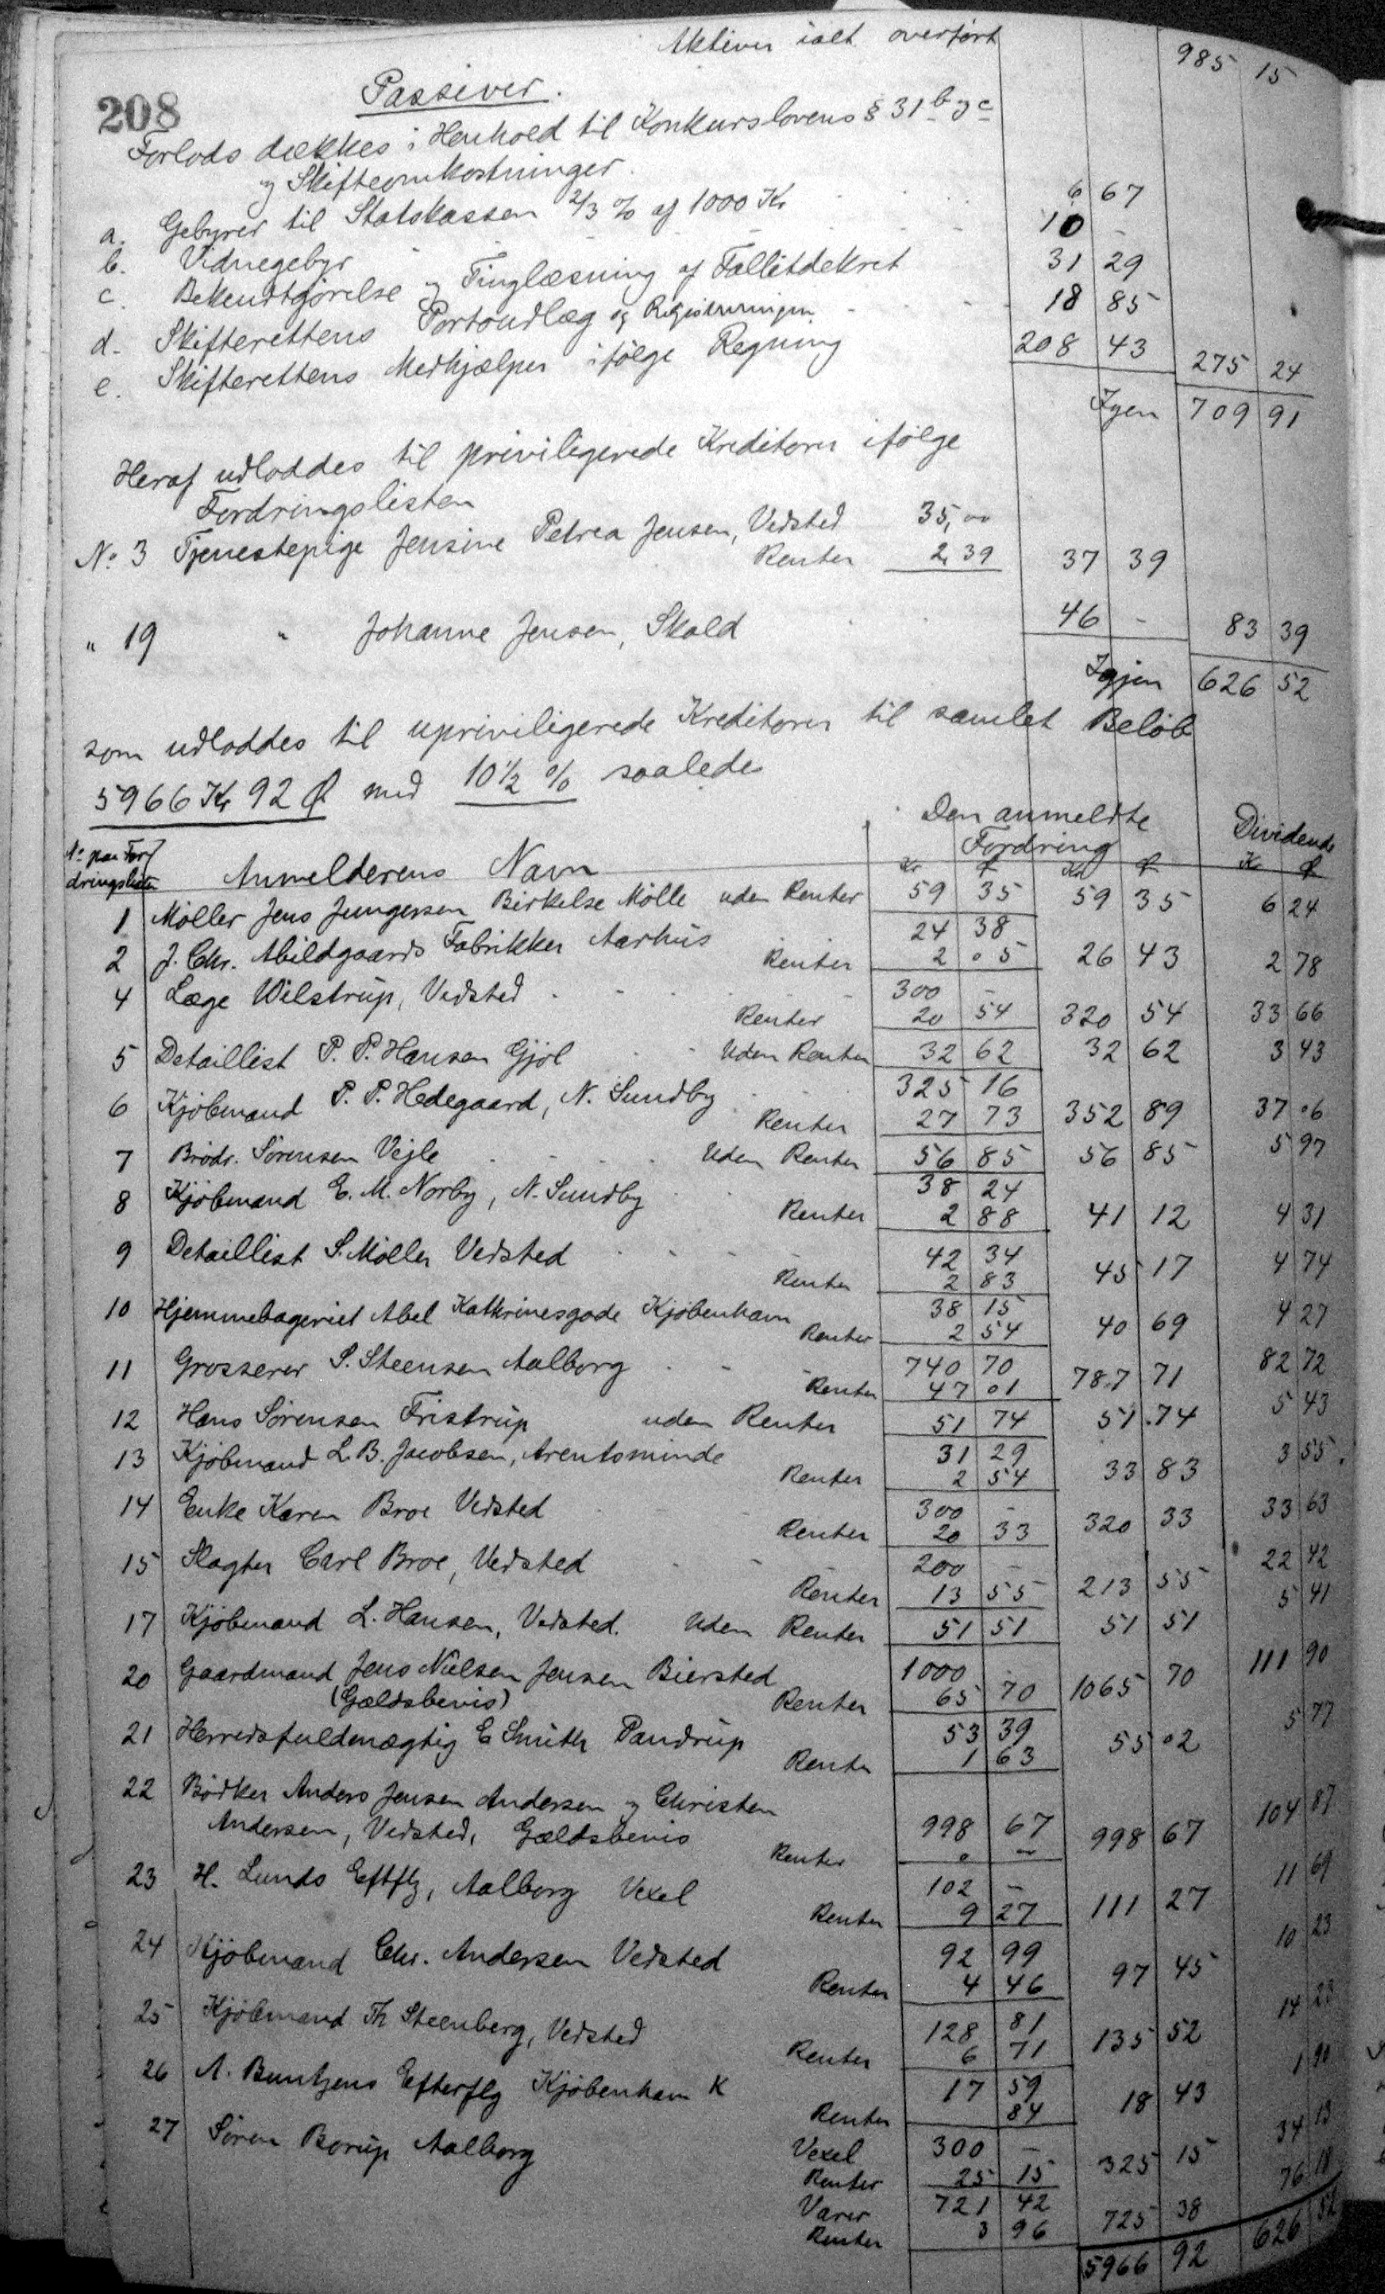 Aktiver ialt overført 985 15
208
Passiver.
Forlods dækkes i Henhold til Konkurslovens § 31 b og c
og Skifteomkostninger.
a. Gebyrer til Statskassen 2/3 % af 1000 Kr 6 67
b. Vidnegebyr 10 -
c. Bekendtgjørelse og Tinglæsning af Fallitdekret 31 29
d. Skifterettens Portoudlæg og Registreringen 18 85
e. Skifterettens Medhjælper ifølge Regning 208 43 275 24
Igen 709 91
Heraf udloddes til priviligerede Kreditorer ifølge
Fordringslisten
No. 3 Tjenestepige Jensine Petrea Jensen, Vedsted 35,00
Renter 2,39 37 39
" 19 " Johanne Jensen, Skald 46 - 83 39
Igjen 626 52
som udloddes til upriviligerede Kreditorer til samlet Beløb
5966 Kr 92 Ø med 10½ % saaledes
No. paa Fordringslisten Anmelderens Navn Den anmeldte Fordring Dividende
Kr Ø Kr Ø K Ø
1 Møller Jens Jungersen Birkelse Mølle uden Renter 59 35 59 35 6 24
2 J. Chr. Abildgaards Fabrikker Aarhus 24 38
Renter 2 05 26 43 2 78
4 Læge Wilstrup, Vedsted 300 -
Renter 20 54 320 54 33 66
5 Detaillist P. P. Hansen Gjøl Uden Renter 32 62 32 62 3 43
6 Kjøbmand P. P. Hedegaard, N. Sundby 325 16
Renter 27 73 352 89 37 06
7 Brødr. Sørensen Vejle Uden Renter 56 85 56 85 5 97
8 Kjøbmand E. M. Norby, N. Sundby 38 24
Renter 2 88 41 12 4 31
9 Detaillist S. Møller Vedsted 42 34
Renter 2 83 45 17 4 74
10 Hjemmebageriet Abel Kathrinesgade Kjøbenhavn 38 15
Renter 2 54 40 69 4 27
11 Grosserer S. Steensen Aalborg 740 70
Renter 47 01 787 71 82 72
12 Hans Sørensen Fristrup uden Renter 51 74 51 74 5 43
13 Kjøbmand L. B. Jacobsen, Arentsminde 31 29
Renter 2 54 33 83 3 55
14 Enke Karen Broe Vedsted 300 -
Renter 20 33 320 33 33 63
15 Slagter Carl Broe, Vedsted 200 -
Renter 13 55 213 55 22 42
17 Kjøbmand L. Hansen, Vedsted. Uden Renter 51 51 51 51 5 41
20 Gaardmand Jens Nielsen Jensen Biersted 1000 -
(Gældsbevis) Renter 65 70 1065 70 111 90
21 Herredsfuldmægtig E Smith Pandrup 53 39
Renter 1 63 55 02 5 77
22 Bødker Anders Jensen Andersen og Christen
Andersen, Vedsted, Gældsbevis 998 67 998 67 104 87
Renter 0 -
23 H. Lunds Eftflg, Aalborg Vexel 102 -
Renter 9 27 111 27 11 69
24 Kjøbmand Chr. Andersen Vedsted 92 99
Renter 4 46 97 45 10 23
25 Kjøbmand Th Steenberg, Vedsted 128 81
Renter 6 71 135 52 14 23
26 A. Buntzens Efterflg Kjøbenhavn K 17 59
Renter 84 18 43 1 90
27 Søren Borup Aalborg Vexel 300 -
Renter 25 15 325 15 34 13
Varer 721 42
Renter 3 96 725 38 76 18
5966 92 626 52